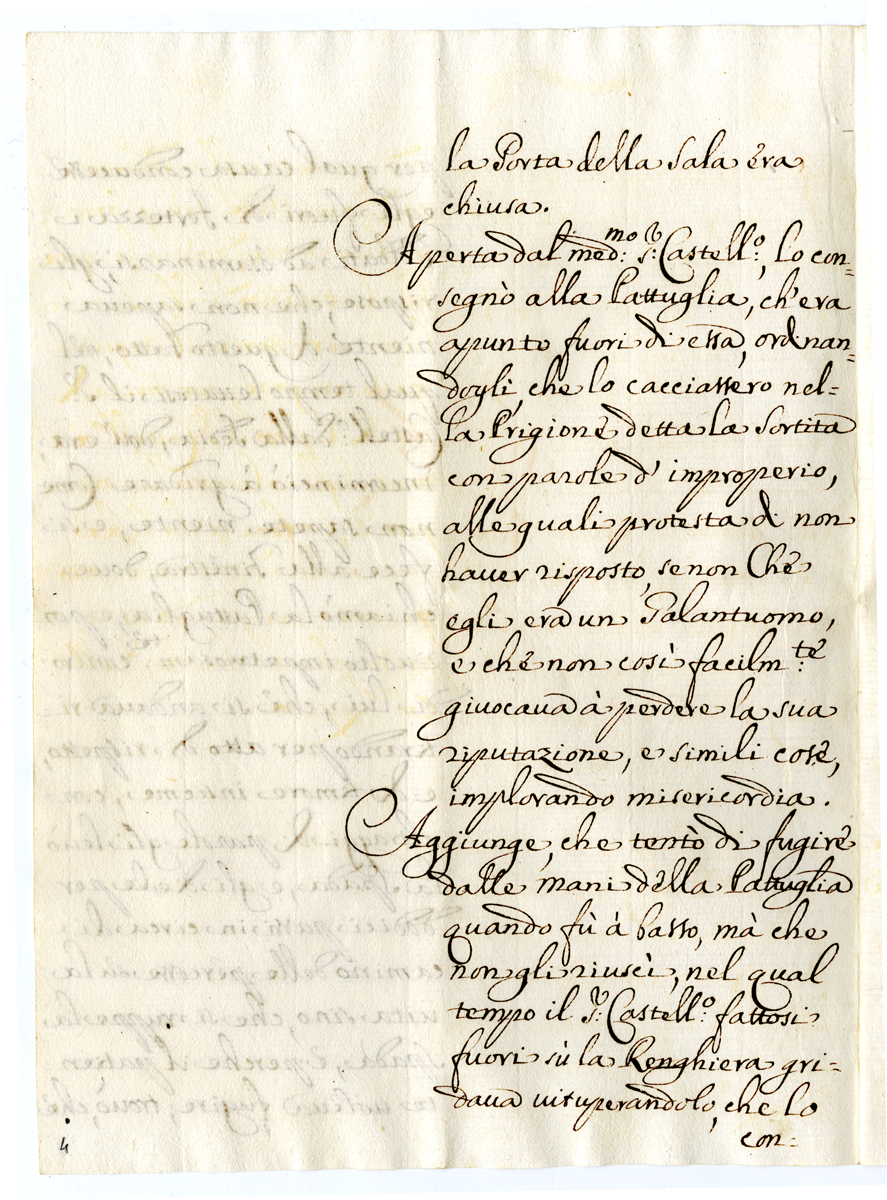 la Porta della Sala èra
chiusa.
Aperta dal med:mo S:r Castell:o, lo con=
segnò alla Pattuglia, ch'era
apunto fuori di essa, ordinan=
dogli, che lo cacciassero nel=
la Prigione detta la Sortita
con parole d'improperio,
alle quali protesta di non
haver risposto, se non Che
egli era un Galantuomo,
e che non così facilm:te
giuocava à perdere la sua
riputazione, e simili cose,
implorando misericordia.
Aggiunge, che tentò di fugire
dalle mani della Pattuglia
quando fù à basso, mà che
non gli riuscì, nel qual
tempo il S:r Castell:o fattosi
fuori sù la Renghiera gri=
dava vituperandolo, che lo
con=
4